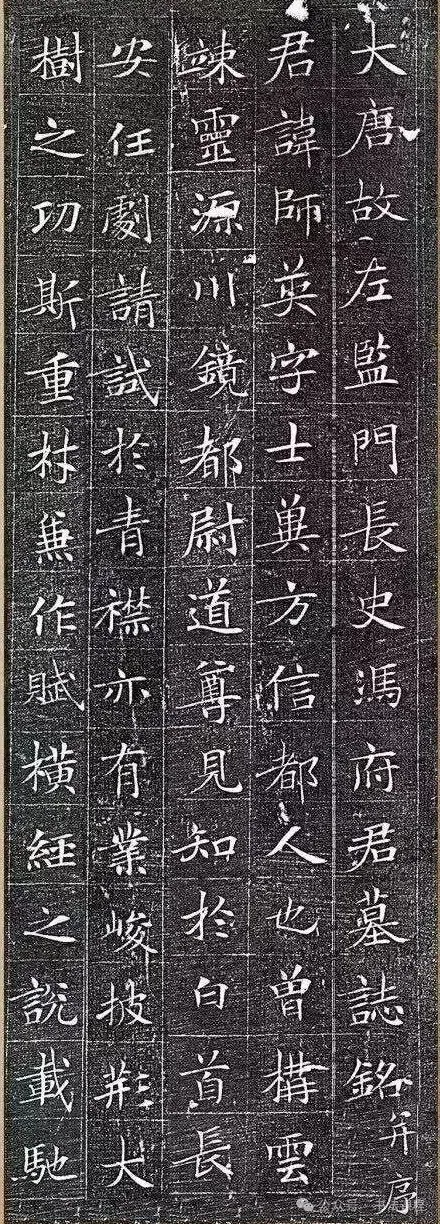 大唐故左監門長史馮府君墓誌銘并序
君諱師英字士兾方信都人也曾構雲
竦靈源川鏡都尉道尊見知於白首長
安任劇請試於青襟亦有業峻披荊大
樹之功斯重材兼作賦橫經之說載馳
公众号